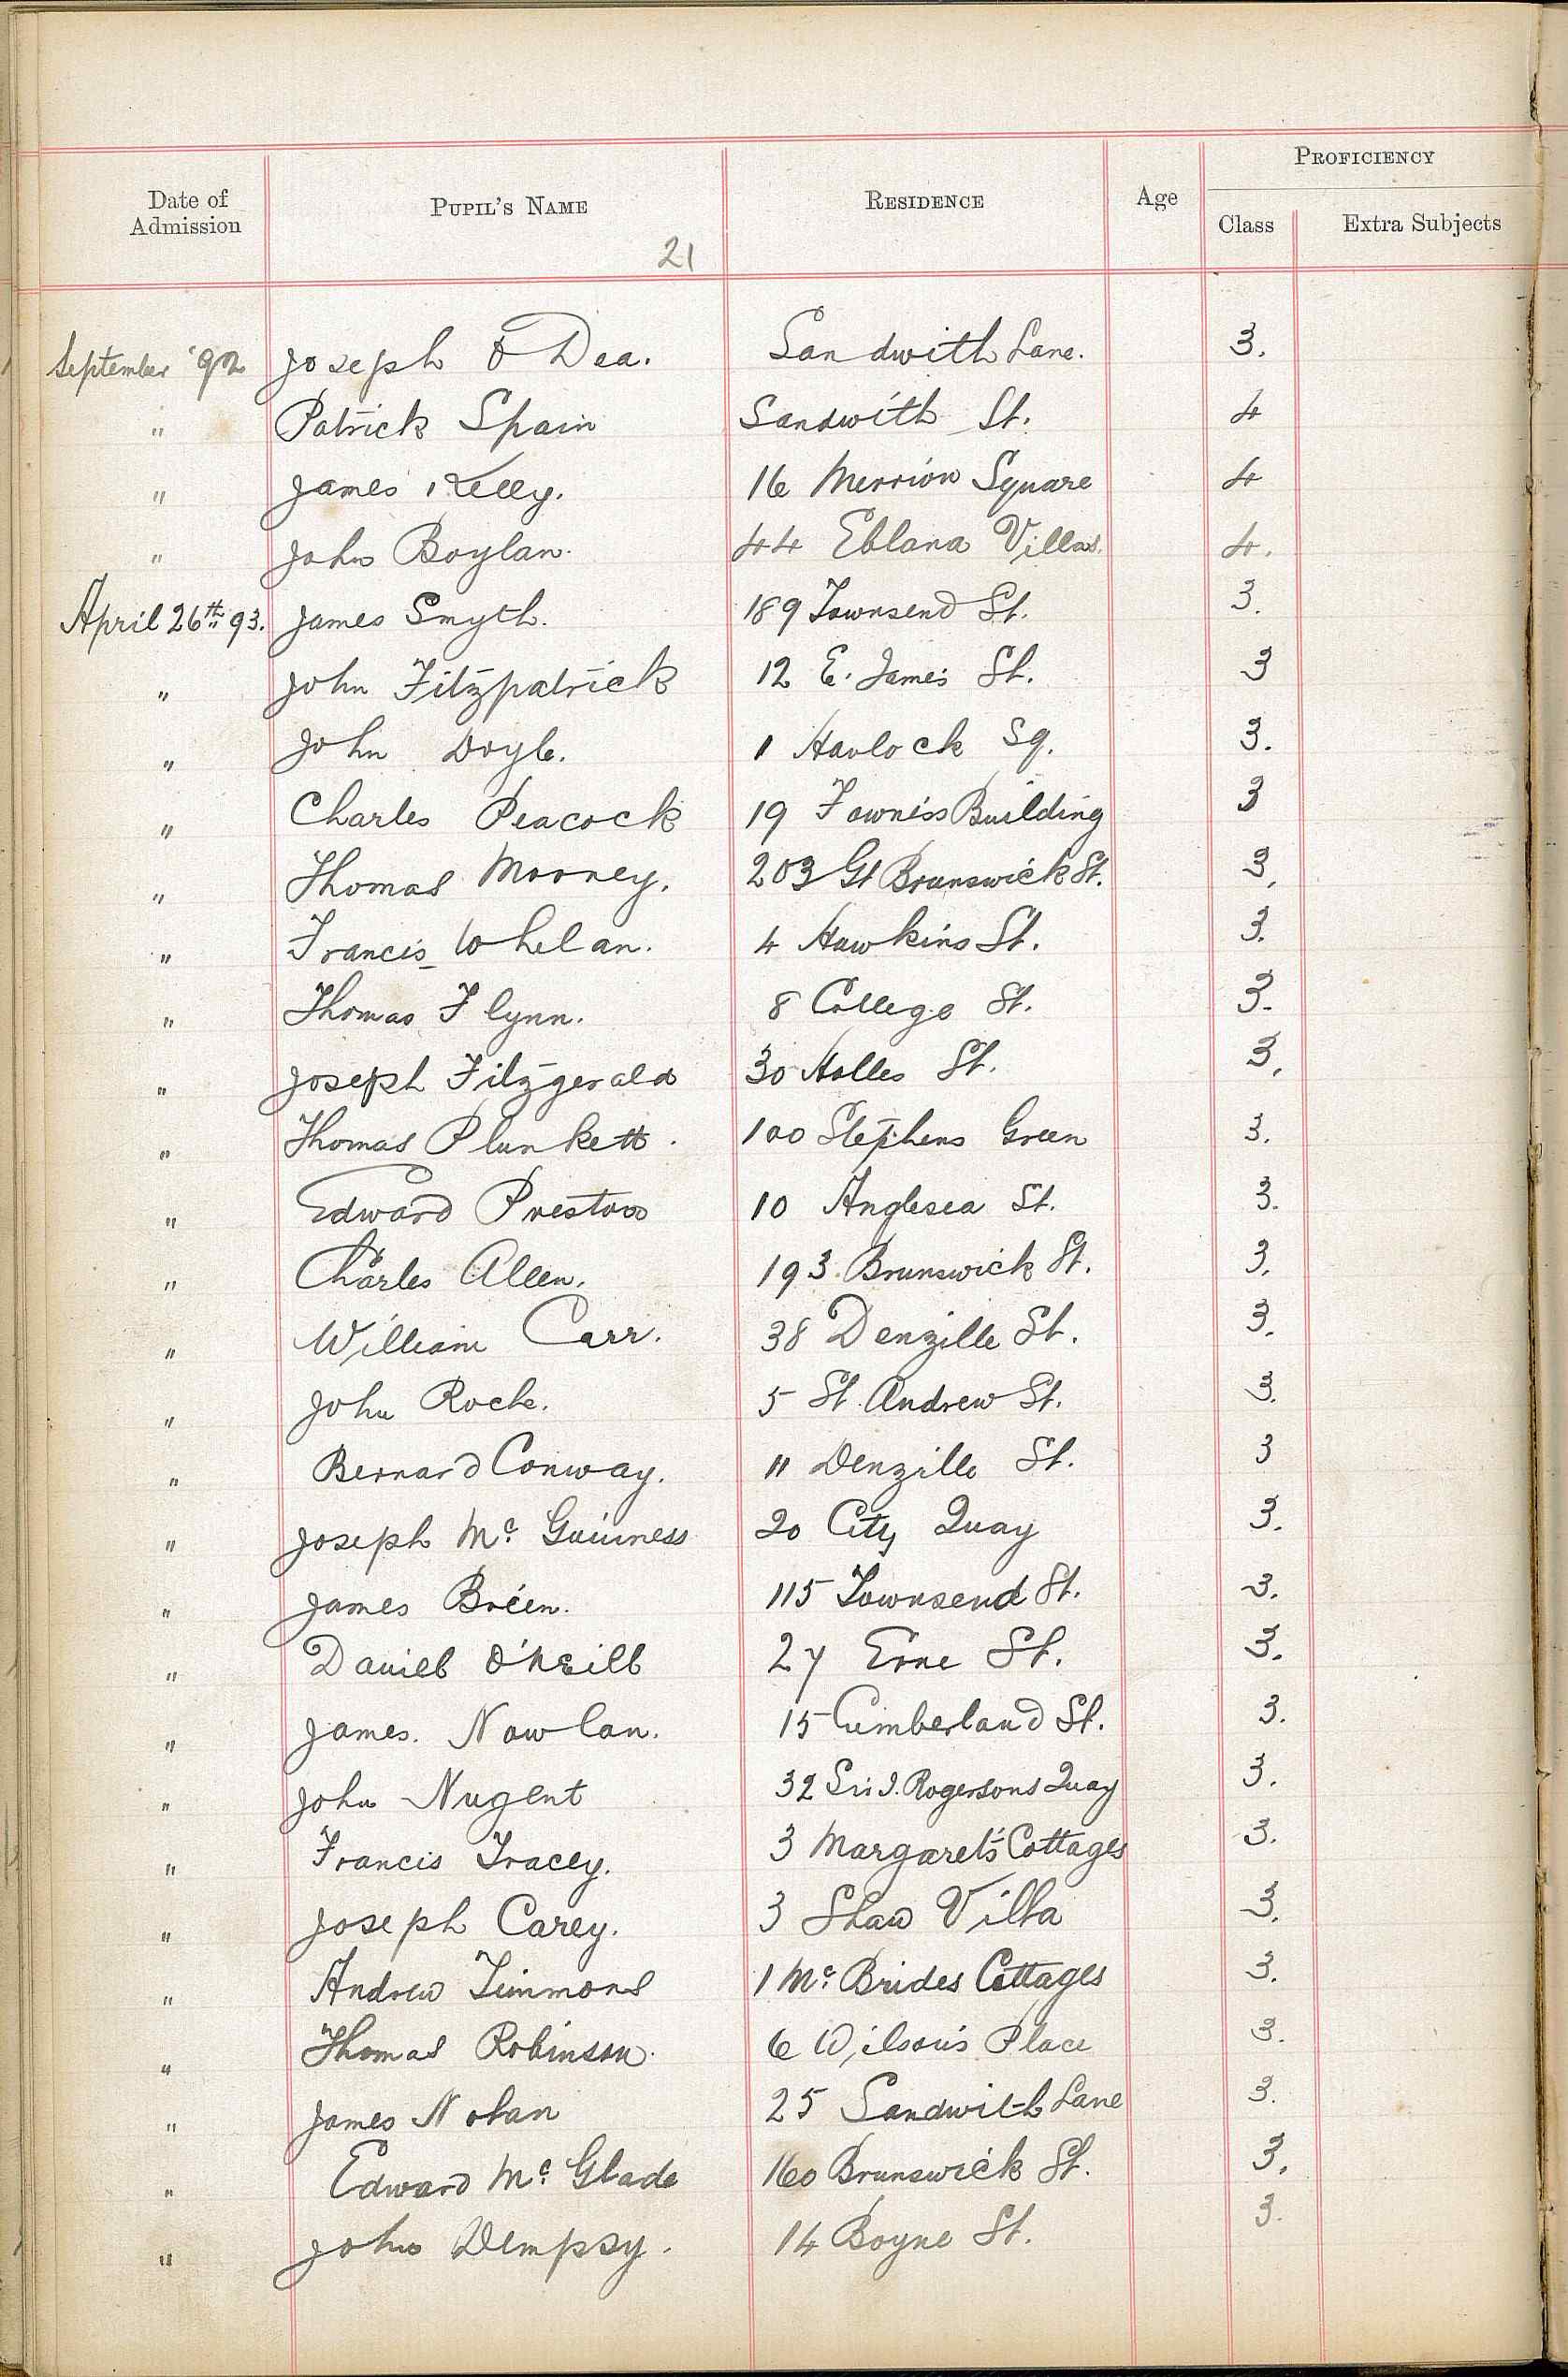 PROFICIENCY
Date of Admission PUPIL'S NAME RESIDENCE Age Class Extra Subjects
21
September '92 Joseph O Dea. Sandwith Lane. 3.
" Patrick Spain Sandwith St. 4
" James Kelly. 16 Merrion Square 4
" John Boylan. 44 Eblana Villas. 4.
April 26th 93. James Smyth. 189 Townsend St. 3.
" John Fitzpatrick 12 E. James St. 3
" John Doyle. 1 Havlock Sq. 3.
" Charles Peacock 19 Fownes's Building 3
" Thomas Mooney. 203 Gt Brunswick St. 3.
" Francis Whelan. 4 Hawkins St. 3.
" Thomas Flynn. 8 College St. 3.
" Joseph Fitzgerald 30 Holles St. 3.
" Thomas Plunkett. 100 Stephens Green 3.
" Edward Preston 10 Anglesea St. 3.
" Charles Allen. 193 Brunswick St. 3.
" William Carr. 38 Denzille St. 3.
" John Roche. 5 St. Andrew St. 3.
" Bernard Conway. 11 Denzille St. 3
" Joseph Mc Guinness 20 City Quay 3.
" James Breen. 115 Townsend St. 3.
" Daniel O'Neill 27 Erne St. 3.
" James. Nowlan. 15 Cumberland St. 3.
" John Nugent 32 Sir J. Rogersons Quay 3.
" Francis Tracey. 3 Margaret's Cottages 3.
" Joseph Carey. 3 Shaw Villa 3.
" Andrew Timmons 1 Mc Brides Cottages 3.
" Thomas Robinson. 6 Wilson's Place 3.
" James Nolan 25 Sandwith Lane 3.
" Edward Mc Glade 160 Brunswick St. 3.
" John Dempsy. 14 Boyne St. 3.